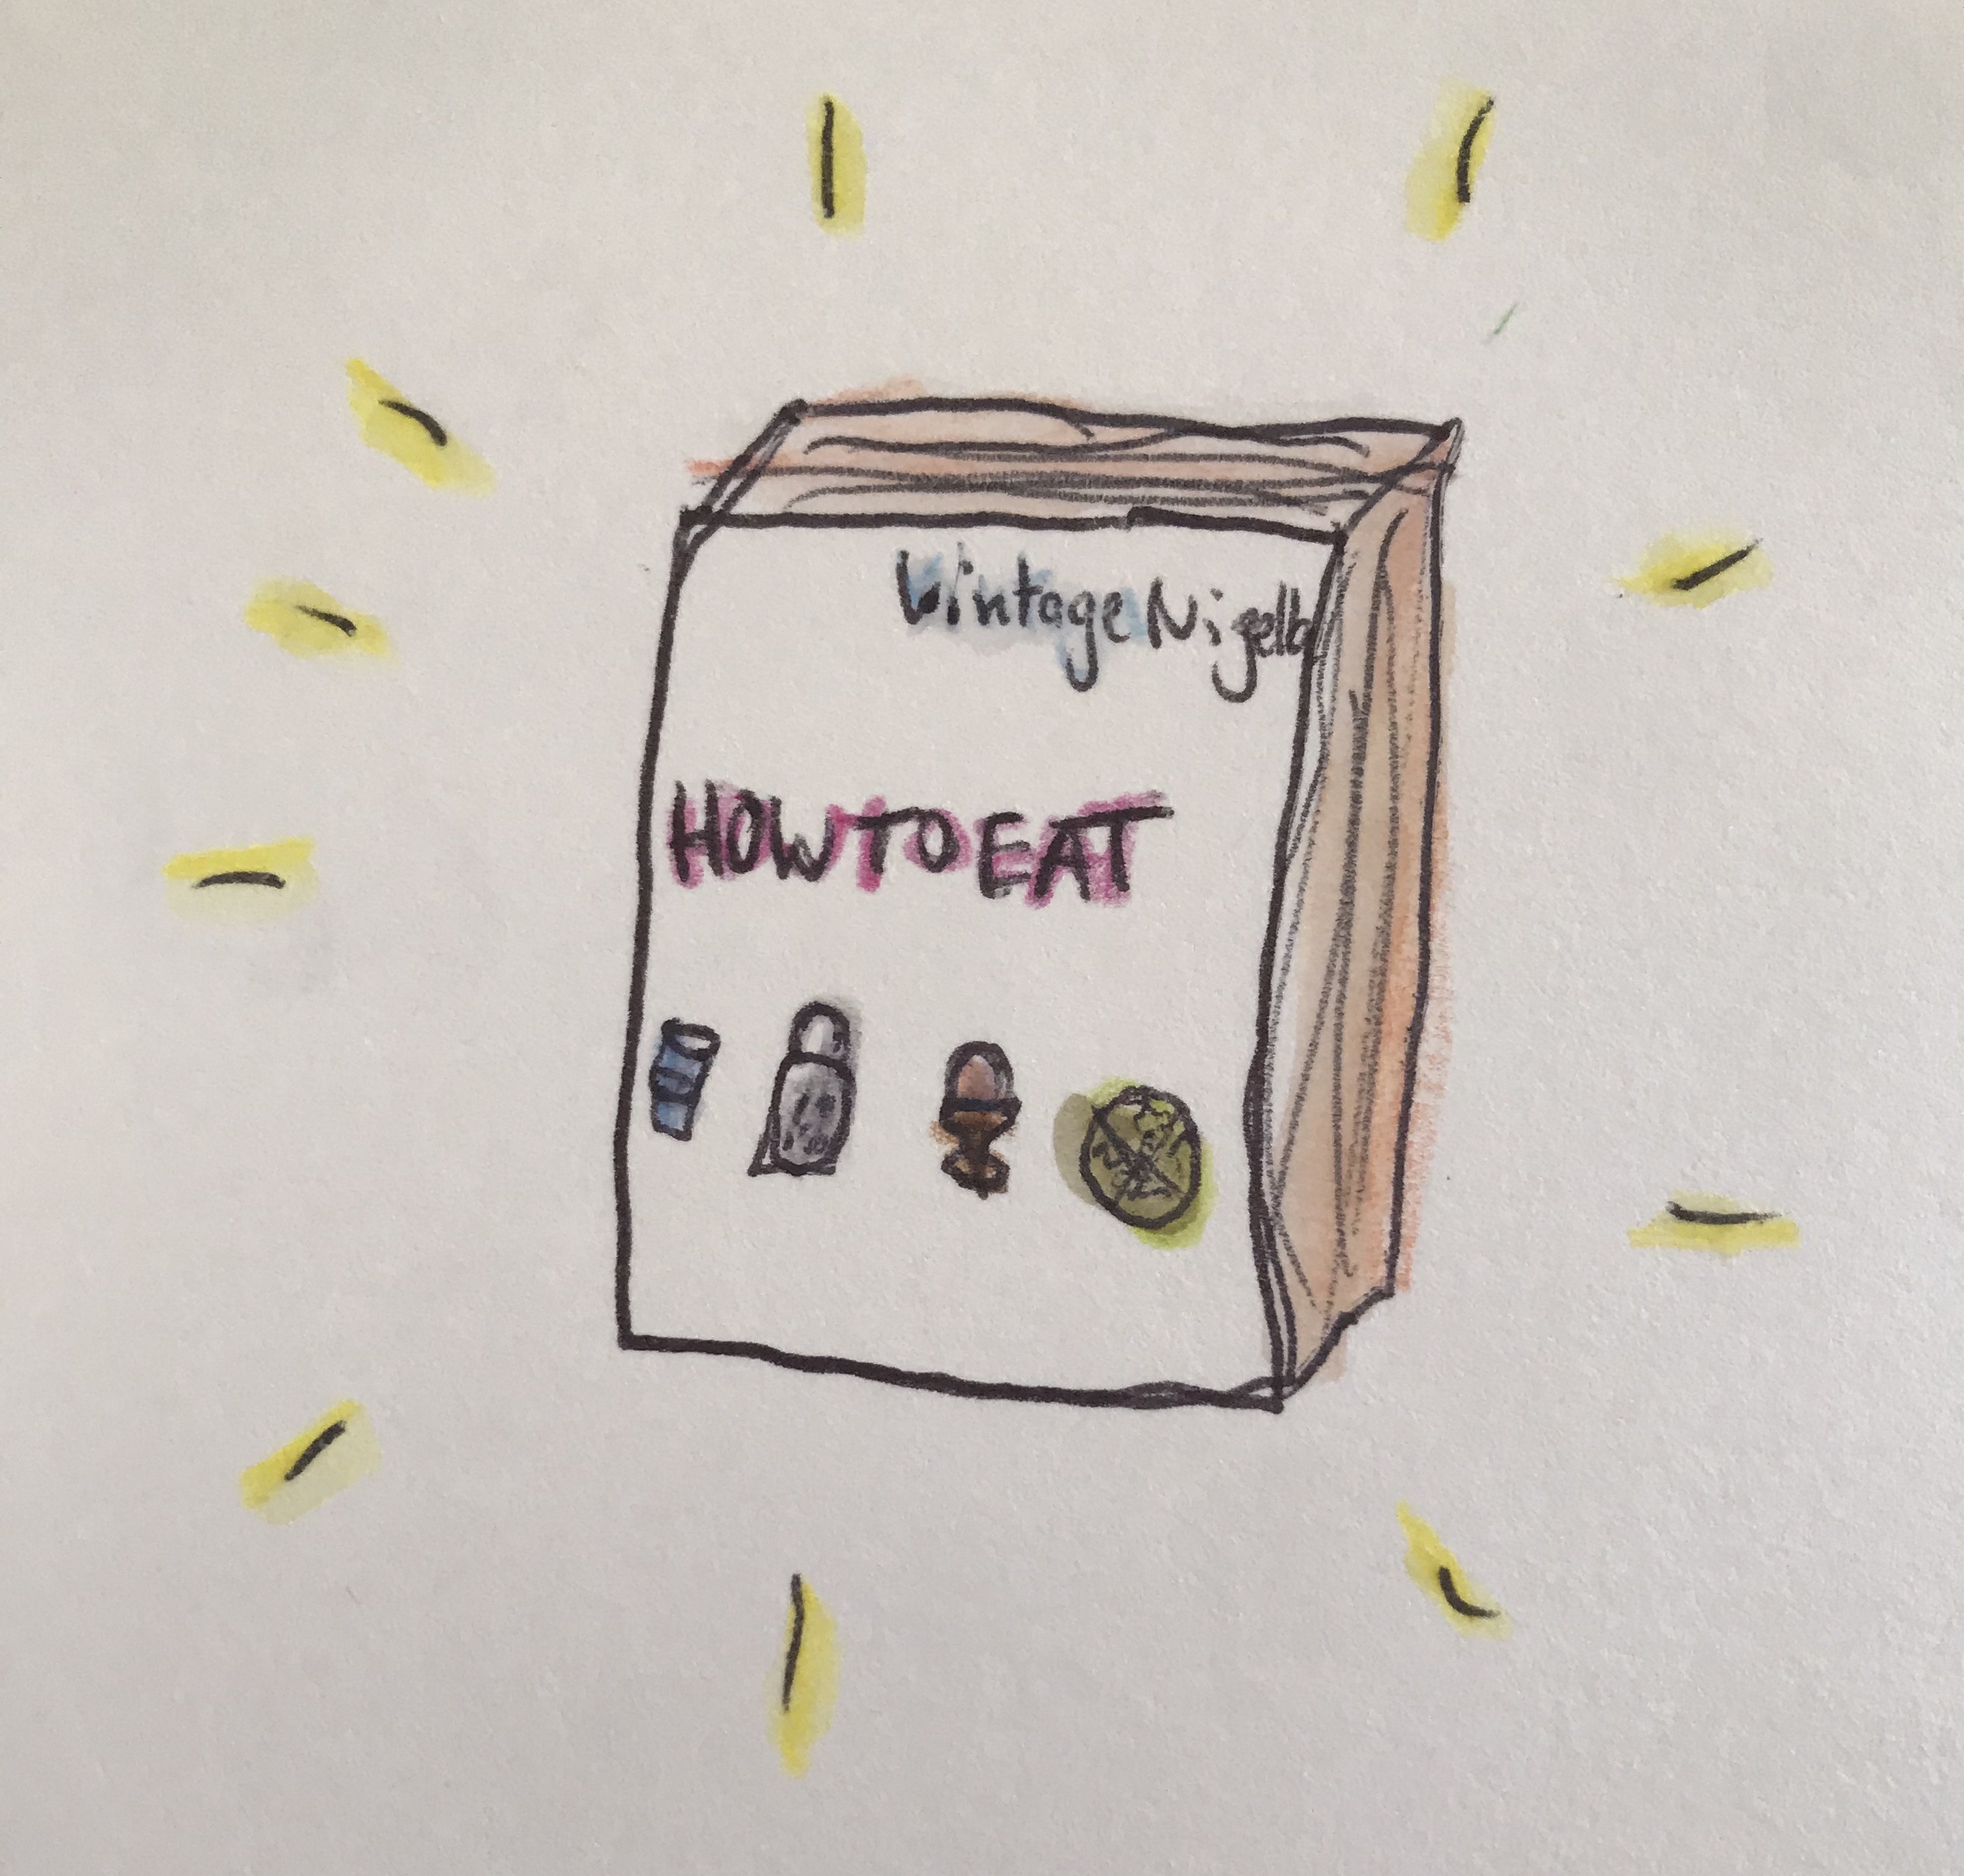 Vintage Nigella
HOW TO EAT